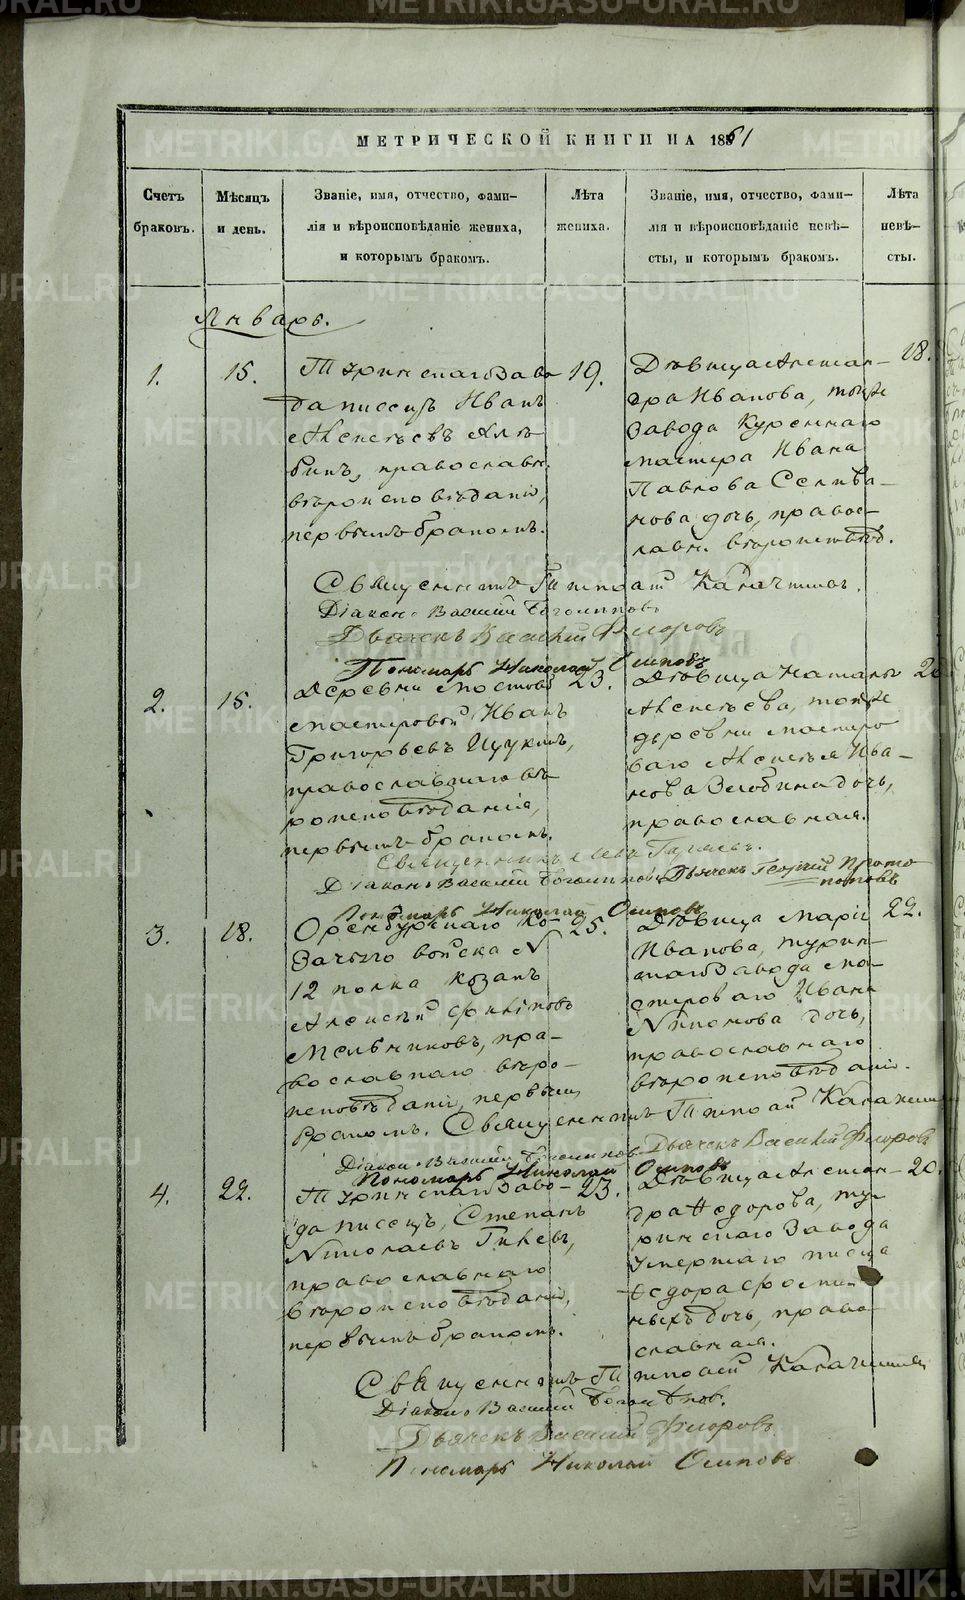 МЕТРИЧЕСКОЙ КНИГИ НА 1861
Счетъ браковъ.
Мѣсяцъ и день.
Званіе, имя, отчество, фами-
лія и вѣроисповѣданіе жениха,
и которымъ бракомъ.
Лѣта жениха.
Званіе, имя, отчество, фами-
лія и вѣроисповѣданіе невѣ-
сты, и которымъ бракомъ.
Лѣта невѣ-
сты.
Январь.
1.
15.
Туринскаго Заво
да писецъ Иванъ
Алексѣевъ
православн.
вѣроисповѣданія,
первымъ бракомъ.
19.
Дѣвица Алексан-
дра Иванова, тогоже
Завода Куреннаго
мастера Ивана
Павлова Селива-
нова дочь, правос-
лавн. вѣроисповѣд.
18.
Священникъ Калачниковъ.
Діаконъ Василій
Дьячекъ Василій Флоровъ
Пономарь Николай Осиповъ
2.
15.
Деревни
мастеровой Иванъ
Григорьевъ Щукинъ,
православнаго вѣ
роисповѣданія,
первымъ бракомъ.
23.
Дѣвица Наталья
Алексѣева, тойже
деревни мастеро
ваго Алексѣя Ива-
нова Злобина дочь,
православная.
Священникъ
Діаконъ Василій Дьячекъ Георгій Прото
поповъ
Пономарь Николай Осиповъ
3.
18.
Оренбурскаго Ко-
зачьяго войска №
12 полка козакъ
Алексѣй
Мельниковъ, пра-
вославнаго вѣро-
исповѣданія, первымъ
бракомъ.
25.
Дѣвица Марія
Иванова, Турин-
скаго Завода ма-
стероваго Ивана
дочь,
православнаго
вѣроисповѣданія.
22.
Священникъ
Діаконъ Василій
Дьячекъ Василій Флоровъ
Пономарь Николай Осиповъ
4.
22.
Туринскаго Заво-
да писецъ, Степанъ
Николаевъ
православнаго
вѣроисповѣданія,
первымъ бракомъ.
23.
Дѣвица Алексан-
дра Ѳедорова, Ту-
ринскаго Завода
умершаго писца
Ѳедора
дочь, право-
славная.
20.
Священникъ
Діаконъ Василій
Дьячекъ Василій Флоровъ
Пономарь Николай Осиповъ
METRIKI.GASO-URAL.RU